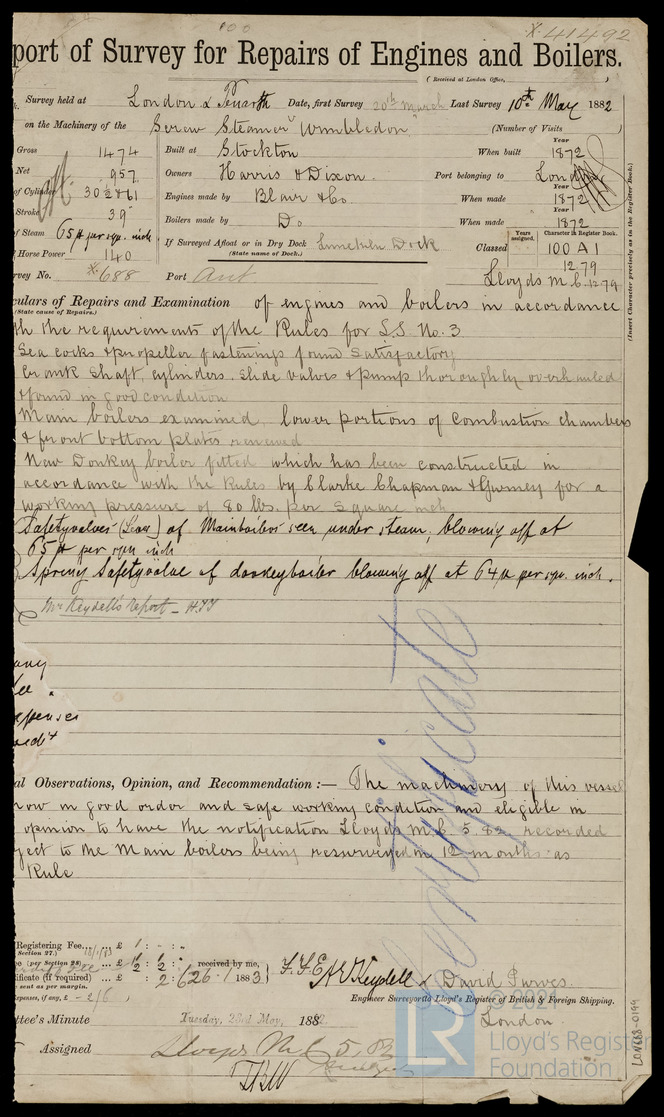 X.41492
port of Survey for Repairs of Engines and Boilers.
(Received at London Office, )
Survey held at London & Date, first Survey 20th March Last Survey 10th May 1882
on the Machinery of the Screw Steamer "Wimbledon" (Number of Visits )
Gross 1474 Built at Stockton When built Year 1872
Net 957 Owners Harris & Dixon Port belonging to London
of Cylinder 30½ & 61 Engines made by Blair & Co. When made Year 1872
Stroke 39" Boilers made by Do. When made Year 1872
of Steam 65 # per sqr. inch If Surveyed Afloat or in Dry Dock Limekiln Dock
(State name of Dock.)
Classed Years assigned. Character in Register Book. 100 A1
Horse Power 140 12.79
vey No. X.688 Port Lloyds M.C. 12.79
(Insert Character precisely as in the Register Book.)
culars of Repairs and Examination of engines and boilers in accordance
(State cause of Repairs.)
th the requirements of the Rules for S.S. No. 3
Sea cocks & propeller fastenings found satisfactory
Crank shaft, cylinders. slide valves & pump thoroughly overhauled
& found in good condition
Main boilers examined, lower portions of combustion chambers
& front bottom plates renewed
New Donkey boiler fitted which has been constructed in
accordance with the Rules by Clarke Chapman & Gurney for a
working pressure of 80 lbs. per square inch
Safetyvalves of Mainboiler seen under steam, blowing off at
65 # per sqr inch
Spring Safetyvalve of donkeyboiler blowing off at 64 # per sqr. inch.
Mr Keydell's report - H.J.J
Certificate
al Observations, Opinion, and Recommendation :— The machinery of this vessel
now in good order and safe working condition and eligible in
opinion to have the notification Lloyds M.C. 5.82 recorded
ject to the Main boilers being resurveyed in 12 months as
Rule
Registering Fee... £ 1 : - : -
Section 27.)
(per Section 28) £ 2 : 2 : received by me,
ificate (if required) £ 2 : 6 26.1 1883
sent as per margin.
xpenses, if any, £ - 2/6
A E Keydell & David Purves
Engineer Surveyor to Lloyd's Register of British & Foreign Shipping.
London
ttee's Minute Tuesday, 23rd May, 1882.
Assigned Lloyds M.C. 5,82
LR © 2021
Lloyd's Register
Foundation
LON688-0199